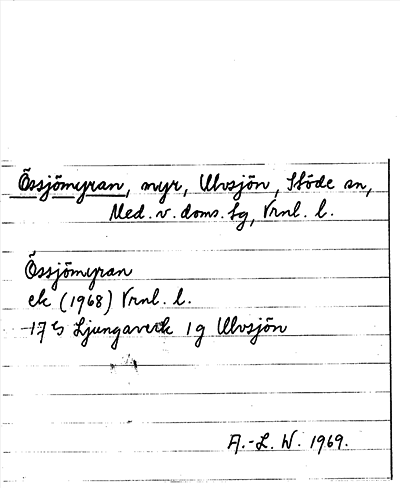 Össjömyran, myr, Ulvsjön, Stöde sn,
Med. v. doms. tg, Vrnl. l.
Össjömyran
ek (1968) Vrnl. l.
17 G Ljungaverk 1 g Ulvsjön
A.-L. W. 1969.